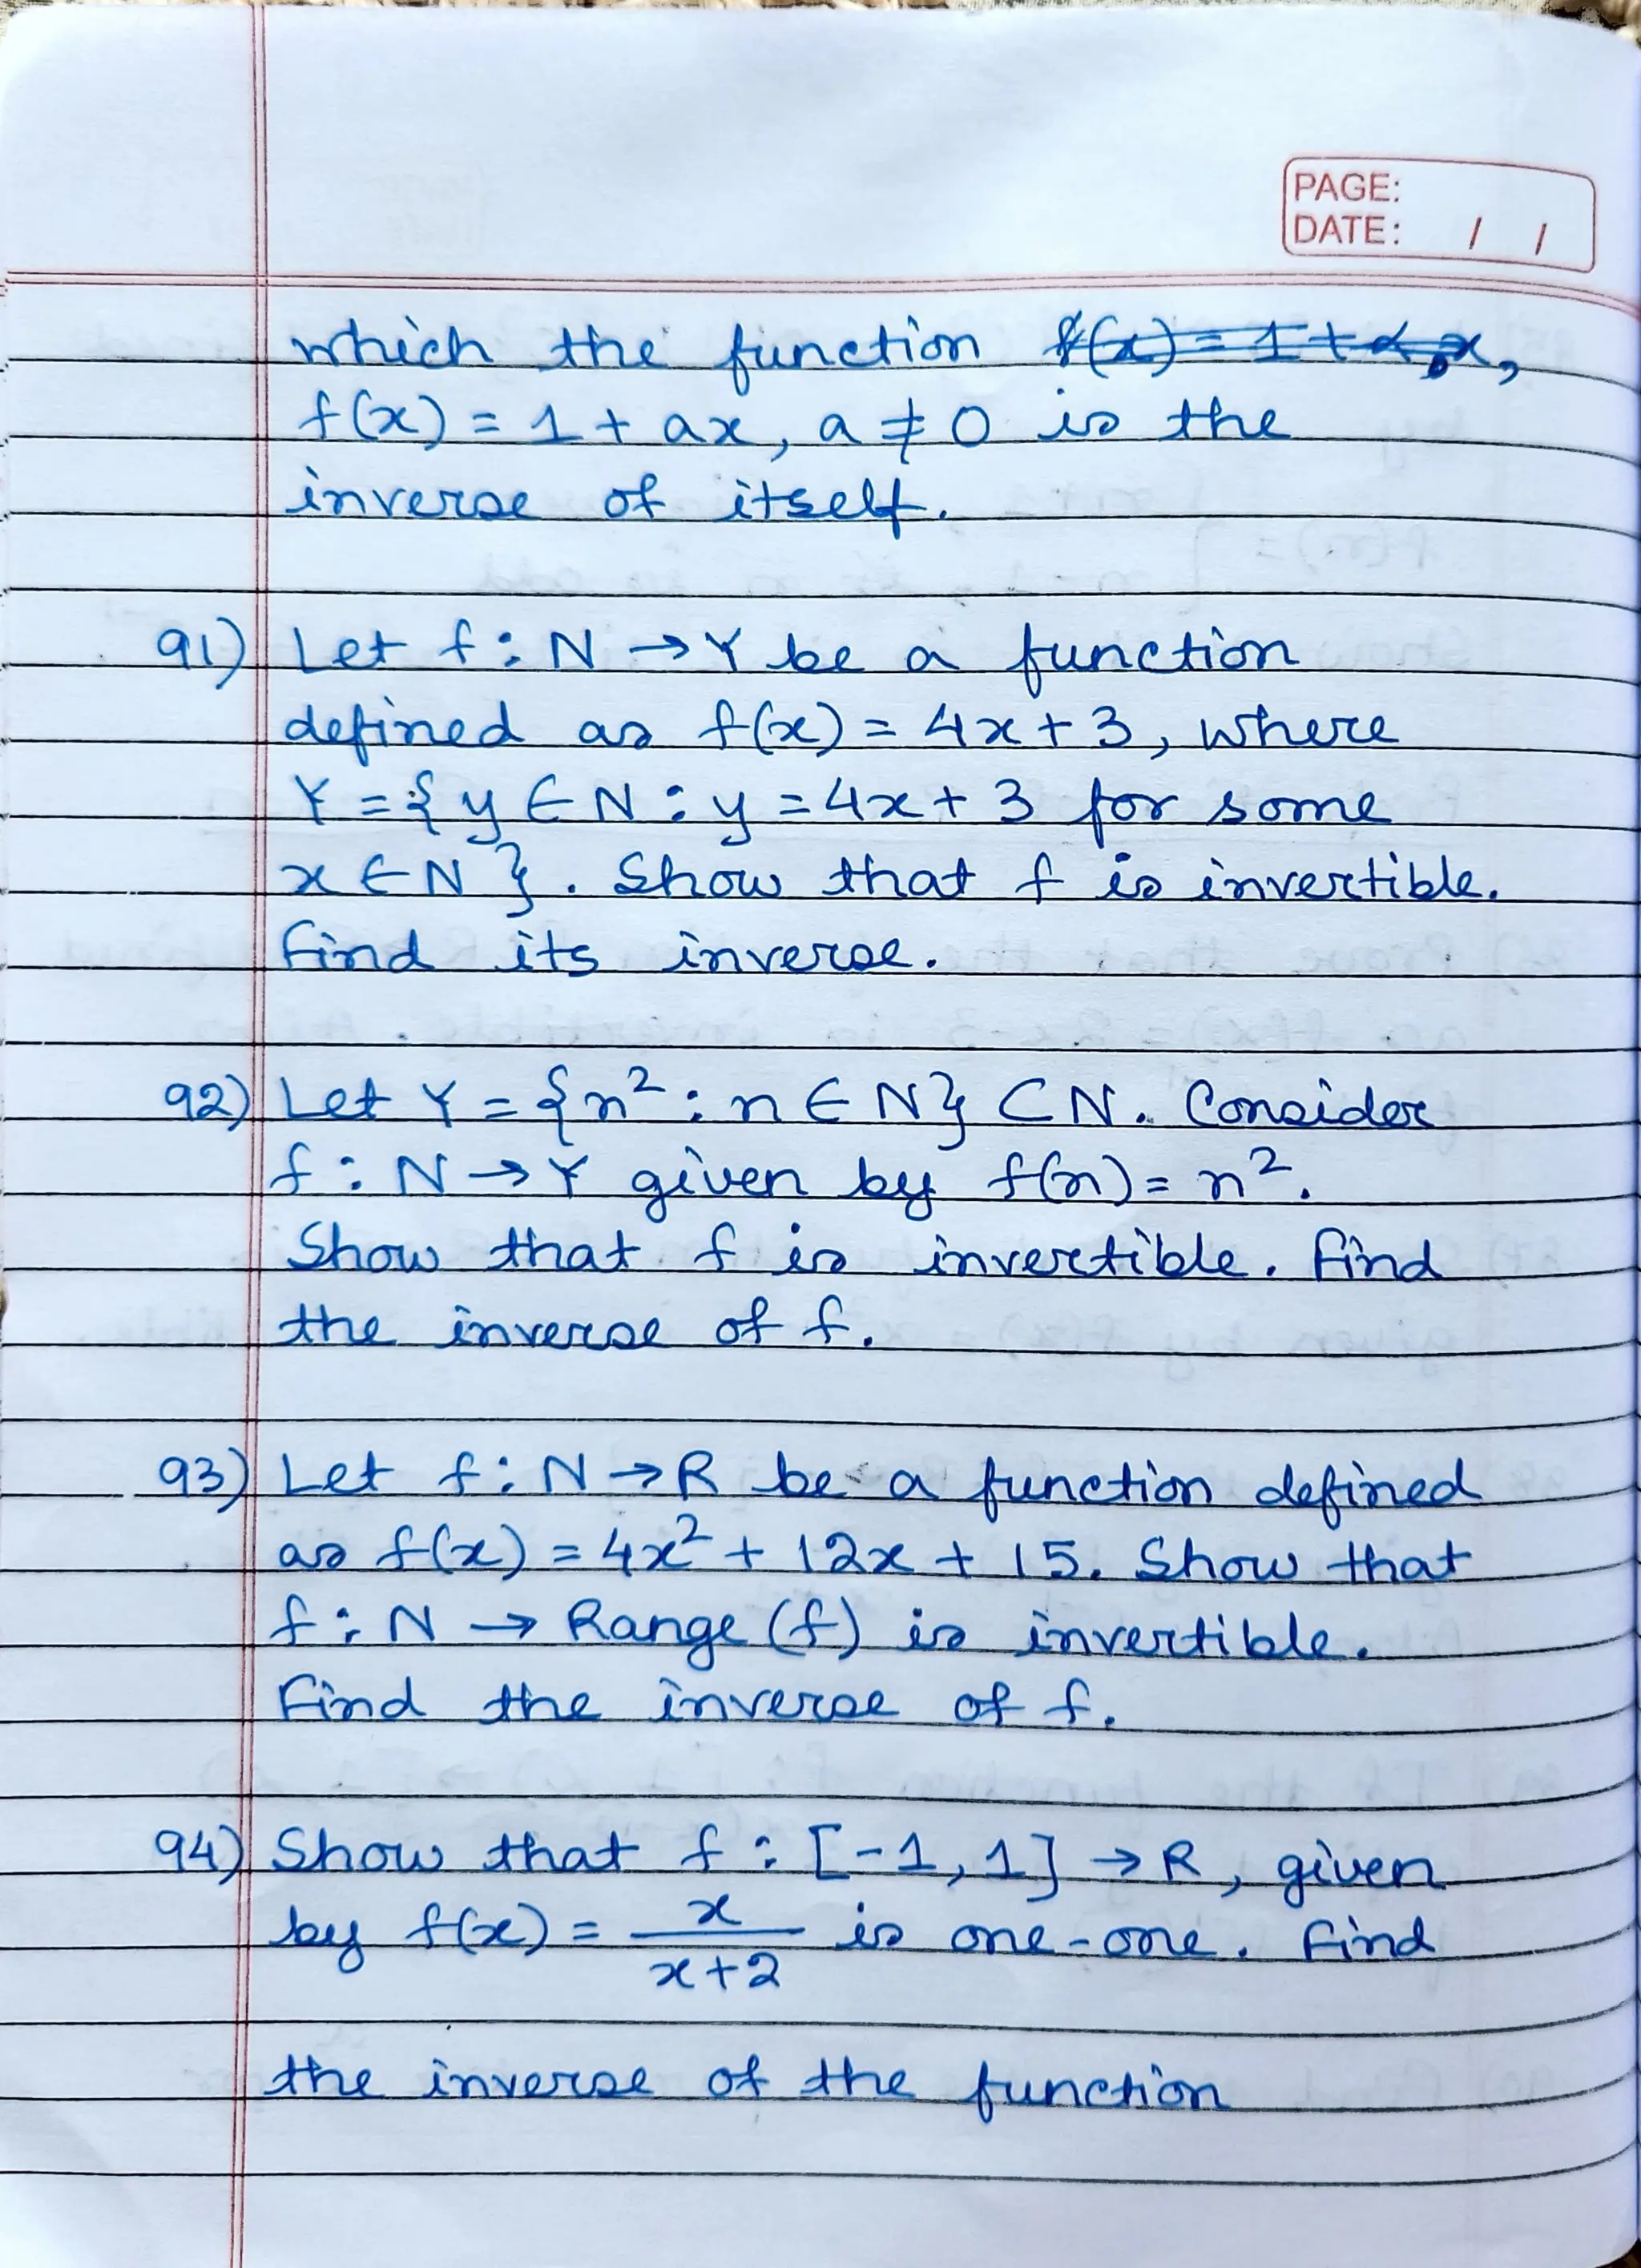 PAGE:
DATE: / /
which the function f(x) = 1 + αx,
f(x) = 1 + ax, a ≠ 0 is the
inverse of itself.
91) Let f : N → Y be a function
defined as f(x) = 4x + 3, where
Y = {y ∈ N : y = 4x + 3 for some
x ∈ N}. Show that f is invertible.
Find its inverse.
92) Let Y = {n² : n ∈ N} ⊂ N. Consider
f : N → Y given by f(n) = n².
Show that f is invertible. Find
the inverse of f.
93) Let f : N → R be a function defined
as f(x) = 4x² + 12x + 15. Show that
f : N → Range (f) is invertible.
Find the inverse of f.
94) Show that f : [-1, 1] → R, given
by f(x) = x/(x+2) is one-one. Find
the inverse of the function